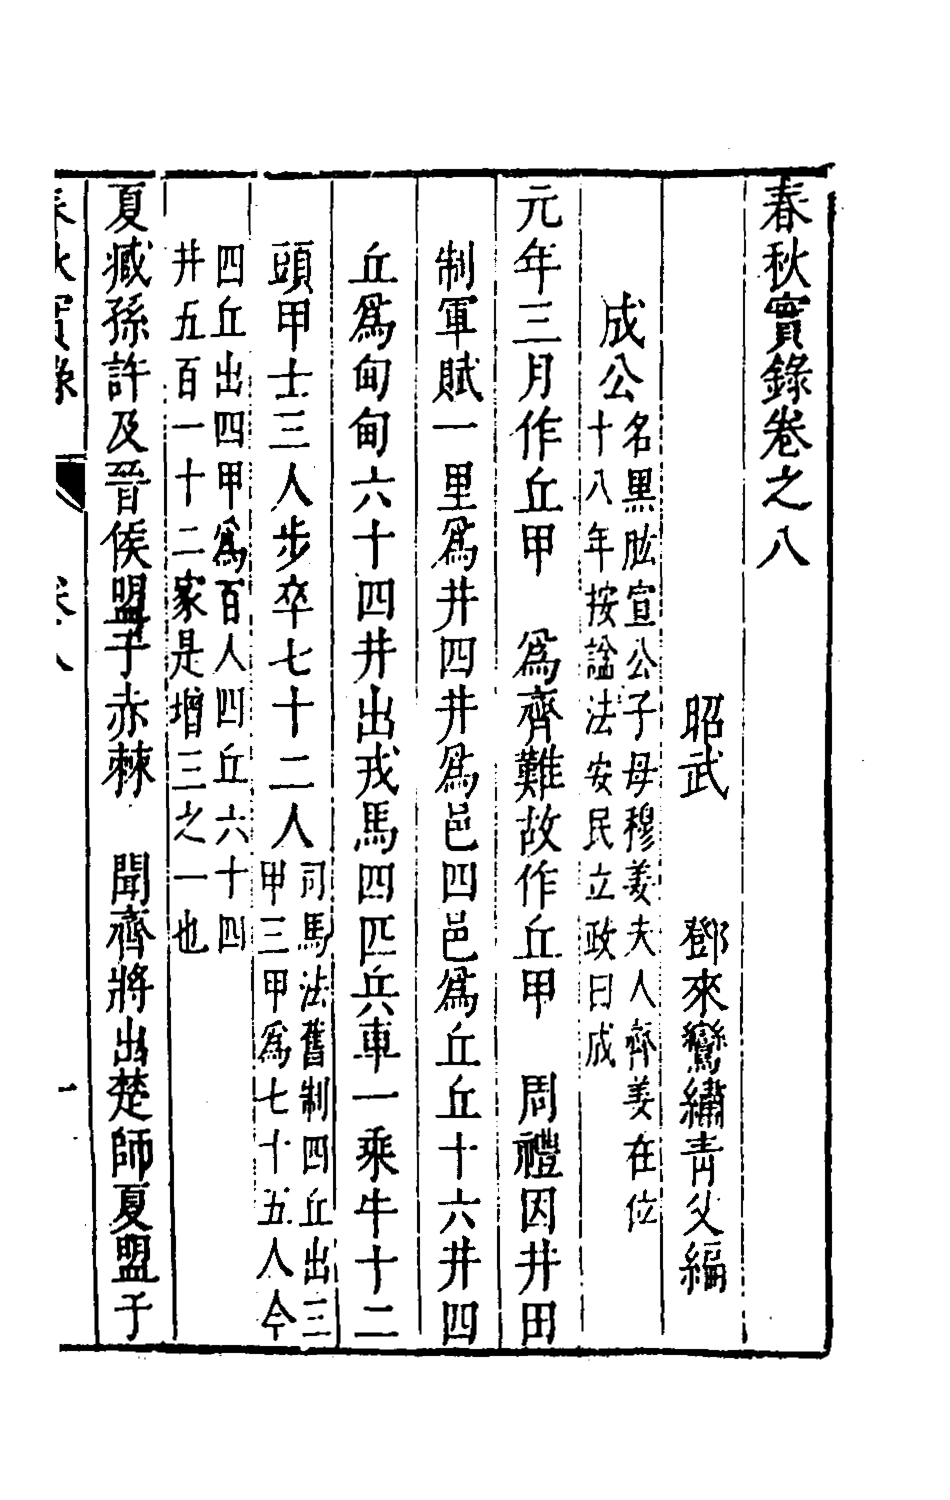 春秋實錄卷之八
昭武　鄧來鸞繡靑父編
成公
名黑肱宣公子母穆姜夫人齊姜在位
十八年按諡法安民立政曰成
元年三月作丘甲　爲齊難故作丘甲　周禮因井田
制軍賦一里爲井四井爲邑四邑爲丘丘十六井四
丘爲甸甸六十四井出戎馬四匹兵車一乘牛十二
頭甲士三人步卒七十二人
司馬法舊制四丘出三
甲三甲爲七十五人今
四丘出四甲爲百人四丘六十四
井五百一十二家是增三之一也
夏臧孫許及晉侯盟于赤棘　聞齊將出楚師夏盟于
春秋實錄　卷八　一